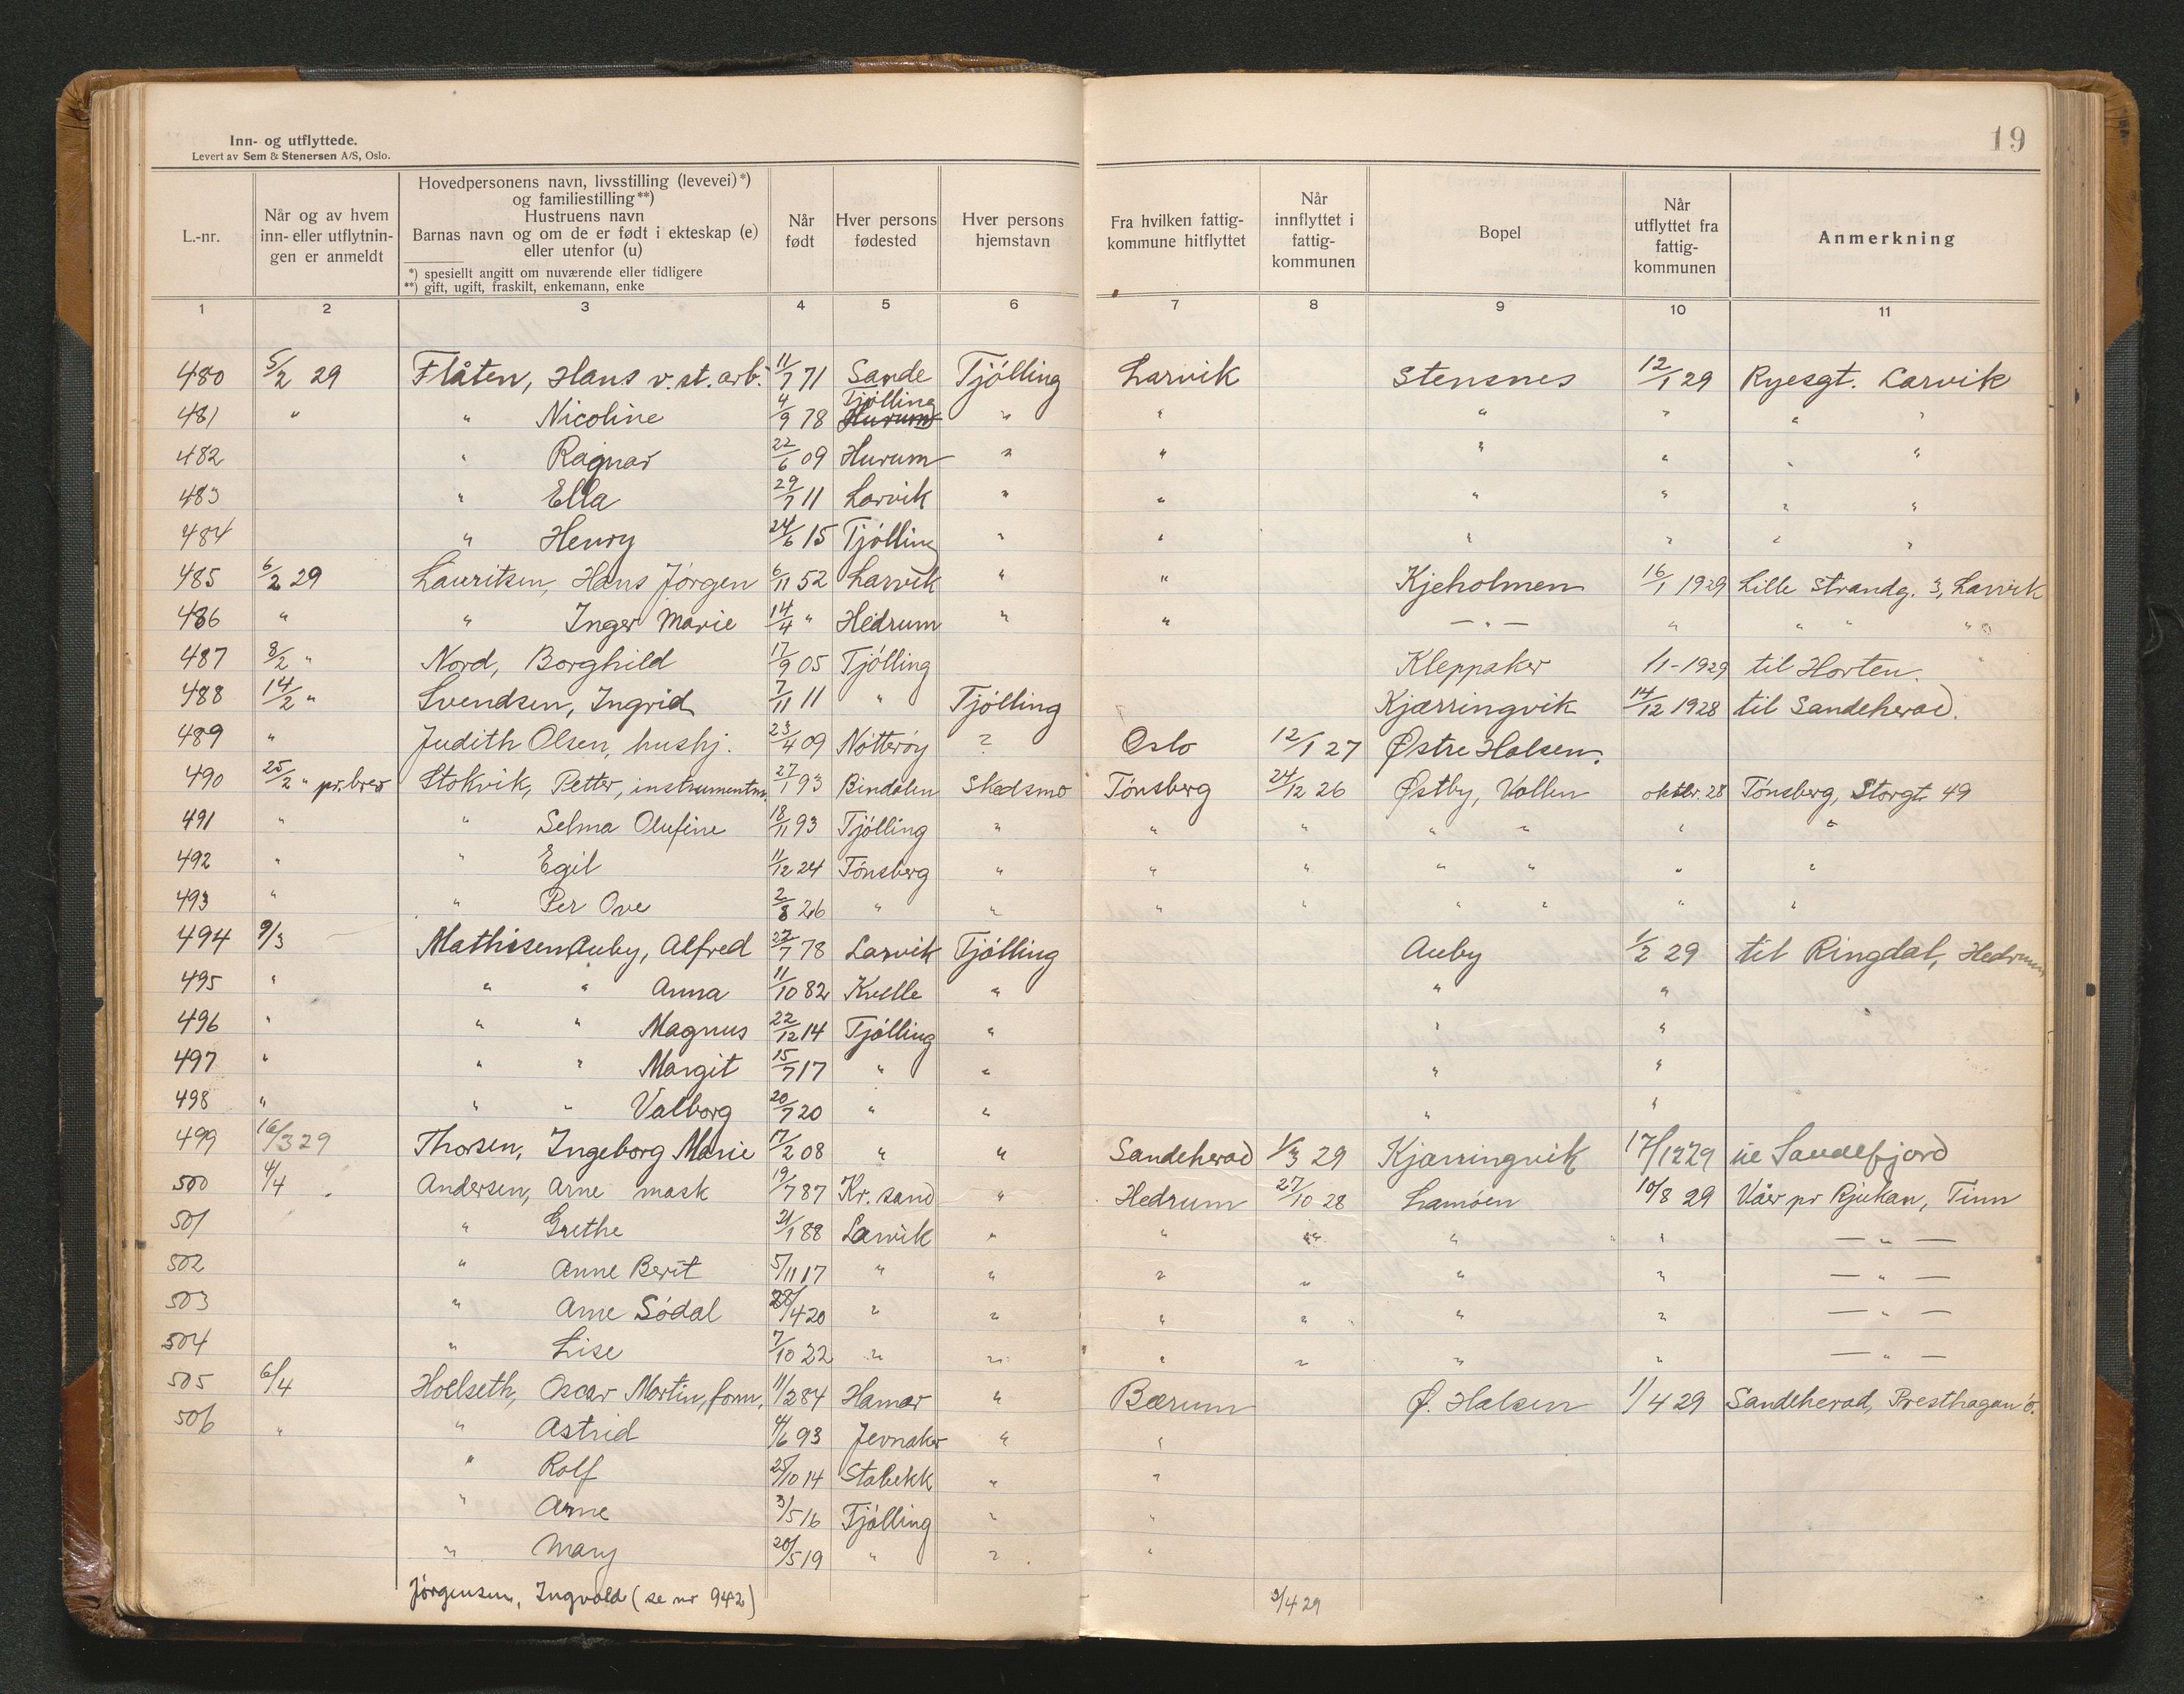 19
Inn- og utflyttede.
Levert av Sem & Stenersen A/S, Oslo.
L.-nr.
Når og av hvem inn- eller utflytnin- gen er anmeldt
Hovedpersonens navn, livsstilling (levevei)*)
og familiestilling**)
Hustruens navn
Barnas navn og om de er født i ekteskap (e)
eller utenfor (u)
*) spesiellt angitt om nuværende eller tidligere
**) gift, ugift, fraskilt, enkemann, enke
Når født
Hver persons fødested
Hver persons hjemstavn
Fra hvilken fattig- kommune hitflyttet
Når innflyttet i fattig- kommunen
Bopel
Når utflyttet fra fattig- kommunen
Anmerkning
1 2 3 4 5 6 7 8 9 10 11
480 5/2 29 Flåten, Hans v.st.arb. 11/7 71 Sande Tjölling Larvik Stensnes 12/1 29 Ryesgt. Larvik
481 " " Nicoline 4/9 78 Tjölling Hurum " " " " " "
482 " Ragnar 22/6 09 Hurum " " " " " "
483 " Ella 29/7 11 Larvik " " " " " "
484 " Henry 24/6 15 Tjölling " " " " " "
485 6/2 29 Lauritsen, Hans Jörgen 6/11 52 Larvik " " Kjeholmen 16/1 1929 Lille Strandg. 3, Larvik
486 " " Inger Marie 14/4 " Hedrum " " — " — " " " " "
487 8/2 " Nord, Borghild 17/9 05 Tjölling Kleppaker 1/1-1929 til Horten.
488 14/2 " Svendsen, Ingrid 7/11 11 " Tjölling Kjærringvik 14/12 1928 til Sandeherad.
489 " Judith Olsen, hushj. 23/4 09 Nötteröy ? Oslo 12/1 27 Østre Halsen.
490 25/2 " pr. brev Stokvik, Petter, instrumentm. 27/1 93 Bindalen Skedsmo Tönsberg 24/12 26 Østby, Vollen oktbr. 28 Tönsberg, Storgt. 49
491 " " Selma Olufine 18/11 93 Tjölling " " " " " " "
492 " " Egil 11/12 24 Tönsberg " " " " " " "
493 " " Per Ove 2/8 26 " " " " " " " "
494 9/3 Mathisen Auby, Alfred 27/7 78 Larvik Tjölling Auby 1/2 29 til Ringdal, Hedrum
495 " " " Anna 11/10 82 Kvelle " " "
496 " " " Magnus 22/12 14 Tjölling " " "
497 " " " Margit 15/7 17 " " " "
498 " " " Valborg 20/7 20 " " " "
499 16/3 29 Thorsen, Ingeborg Marie 17/2 08 " " Sandeherad 1/3 29 Kjærringvik 17/12 29 til Sandefjord
500 4/4 Andersen, Arne mask 19/7 87 Kr. sand " Hedrum 27/10 28 Lamöen 10/8 29 Våer pr Rjukan, Tinn
501 " Grethe 21/1 88 Larvik " " " " " — " —
502 " Anne Berit 5/11 17 " " " " " " — " —
503 " Arne Södal 28/4 20 " " " " " " — " —
504 " Lise 7/10 22 " " " " " " — " —
505 6/4 Hoelseth, Oscar Martin, form, 11/2 84 Hamar " Bærum Ø. Halsen 1/4 29 Sandeherad, Presthagan ö.
506 " " Astrid 4/6 93 Jevnaker " "
" Rolf 25/10 14 Stabekk " "
" Arne 3/5 16 Tjölling " "
" Mary 20/5 19 " " "
Jörgensen, Ingvald (se nr 942) 3/4 29